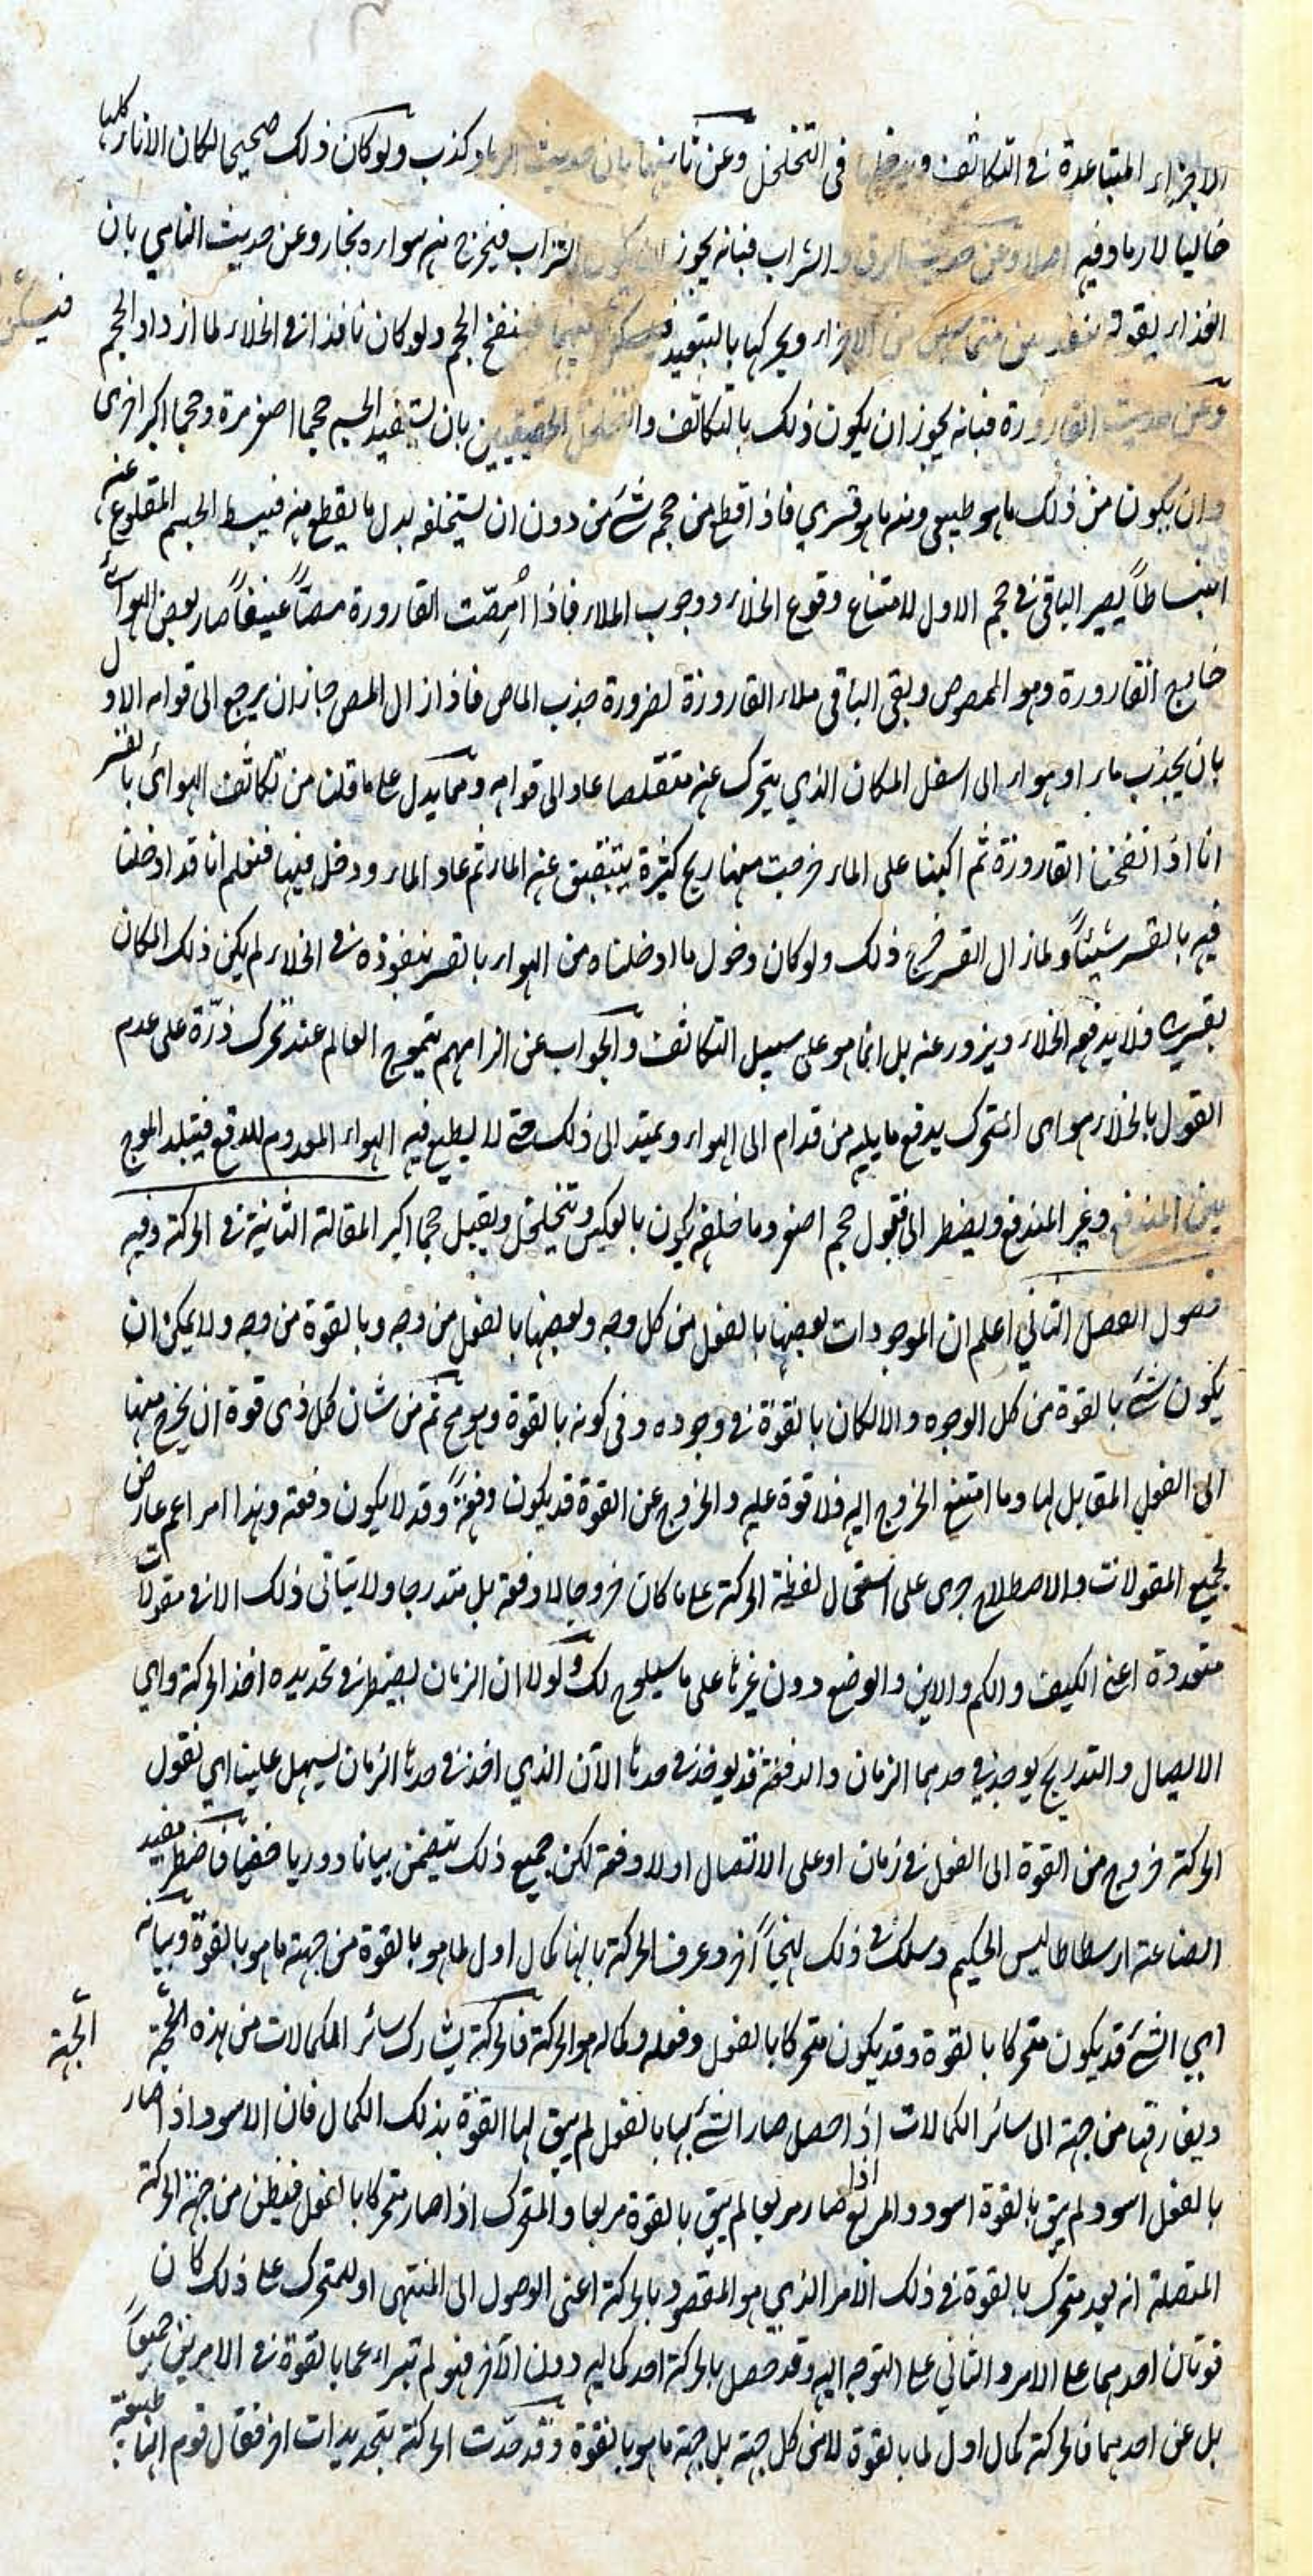 الاجزاء المتباعدة في التكاثف في التخلخل وعن ثانيتهما بان حديث الرماد كذب ولو كان ذلك صحيحا لكان الاناء كلها
خاليا لا رماد فيه اصلا وعن حديث الزق والشراب فبانه يجوز ان يكون الشراب فيخرج منه سواره بخار وعن حديث النامي بان
الغذاء بقوة ينفذ بين متماسين من الاجزاء ويحركها بالتبعيد فيسكن بينهما فينفخ الحجم ولو كان نافذا في الخلاء لما ازداد الحجم
فيسكن
وعن حديث القارورة فبانه يجوز ان يكون ذلك بالتكاثف والتخلخل الحقيقيين بان يستفيد الجسم حجما اصغر مرة وحجما اكبر اخرى
وان يكون من ذلك ما هو طبيعي ومنه ما هو قسري فاذا قطع من حجم شئ من دون ان يستخلفه بدل ما يقطع منه فيبسط الجسم المقلوع عنه
انبساطاً يصير الباقي في حجم الاول لامتناع وقوع الخلاء ووجوب الملاء فاذا اُمِصّت القارورة مصّاً عنيفاً صار بعض الهواء
خارج القارورة وهو الممصوص وبقي الباقي ملاء القارورة لضرورة جذب الماص فاذا زال المص جاز ان يرجع الى قوامه الاول
بان يجذب ماء او هواء الى اسفل المكان الذي يتحرك عنه متقلصا عاد الى قوامه ومما يدل على ما قلنا من تكاثف الهوائي بالقسر
انا اذا نفخنا القارورة ثم اكبنا على الماء خرجت منها ريح كثيرة يتبقبق عنه الماء ثم عاد الماء ودخل فيها فنعلم انا قد ادخلنا
فيه بالقسر شيئاً ولما زال القسر خرج ذلك ولو كان دخول ما ادخلناه من الهواء بالقسر بنفوذه في الخلاء لم يكن ذلك المكان
بقسره فلا يدفعه الخلاء ويزور عنه بل انما هو على سبيل التكاثف والجواب عن الزامهم بتموج العالم عند تحرك ذرّة على عدم
القول بالخلاء هو اى المتحرك يدفع ما يليه من قدام الى الهواء ويمتد الى ذلك حتى لا يطيع فيه الهواء المقدوم للدفع فيتلبد الموج
بين المندفع وغير المندفع ويضطر الى قبول حجم اصغر وما خلفه يكون بالعكس وتتخلخل ويقبل حجما اكبر المقالة الثانية في الحركة وفيه
فصول الفصل الثاني اعلم ان الموجودات بعضها بالفعل من كل وجه وبعضها بالفعل من وجه وبالقوة من وجه ولا يمكن ان
يكون شئ بالقوة من كل الوجوه والا لكان بالقوة في وجوده وفي كونه بالقوة وهو مح ثم من شان كل ذى قوة ان يخرج منها
الى الفعل المقابل لها وما امتنع الخروج اليه فلا قوة عليه والخروج عن القوة قد يكون دفعةً وقد لا يكون دفعة وهذا امر اعم عارض
لجميع المقولات والاصطلاح جرى على استعمال لفظة الحركة على ما كان خروجا لا دفعة بل متدرجا ولا يتاتى ذلك الا في مقولات
متعددة اعني الكيف والكم والاين والوضع دون غيرها على ما سيلوح لك ولولا ان الزمان يضطر في تحديده اخذ الحركة واي
الاتصال والتدريج يوجد في حدهما الزمان والدفعة قد يوخذ في حدها الآن الذي اخذ في حدها الزمان ليسهل علينا اي نقول
الحركة خروج من القوة الى الفعل في زمان او على الاتصال او لا دفعة لكن جميع ذلك يتضمن بيانا دوريا خفيّا فاضطر مفيد
الصناعة ارسطاطاليس الحكيم وسلك في ذلك نهجاً آخر وعرف الحركة بانها كمال اول لما هو بالقوة من جهة ما هو بالقوة وبيانه
اي الشئ قد يكون متحركا بالقوة وقد يكون متحركا بالفعل وفعله وكماله هو الحركة فالحركة يشارك سائر الكمالات من هذه الجهة
الجهة
ويفارقها من جهة الى سائر الكمالات اذا حصل صار الشئ بها بالفعل لم يبق لها القوة بذلك الكمال فان الاسود اذا صار
بالفعل اسود لم يبق بالقوة اسود والمربع اذا صار مربعا لم يبق بالقوة مربعا والمتحرك اذا صار متحركا بالفعل فيظن من جهة الحركة
المتصلة انه بعد متحرك بالقوة في ذلك الامر الذي هو المقصود بالحركة اعني الوصول الى المنتهى او للمتحرك على ذلك كان
قوتان احدهما على الامر والثاني على التوجه اليه وقد حصل بالحركة احد كماليه دون الآخر فهو لم تبراء عما بالقوة في الامرين جميعاً
بل عن احدهما فالحركة كمال اول لما بالقوة لا من كل جهة بل جهة ما هو بالقوة وقد حدّت الحركة بتحديدات اخر فقال قوم انها طبيعة